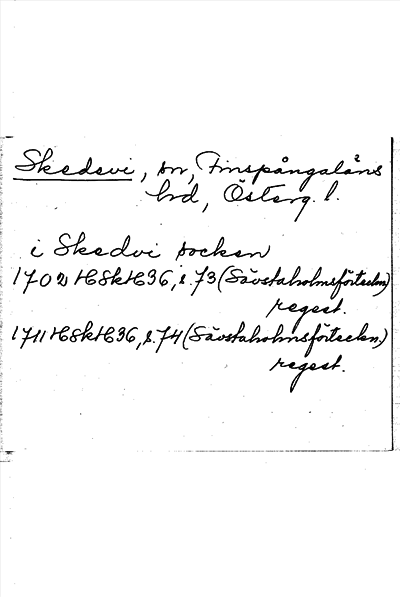 Skedevi, sn, Finspångaläns
hd, Österg. l.
i Skedvi socken
1702 HSkH36, s. 73 (Sävstaholmsförteckn.)
regest.
1711 HSkH36, s. 74 (Sävstaholmsförteckn.)
regest.